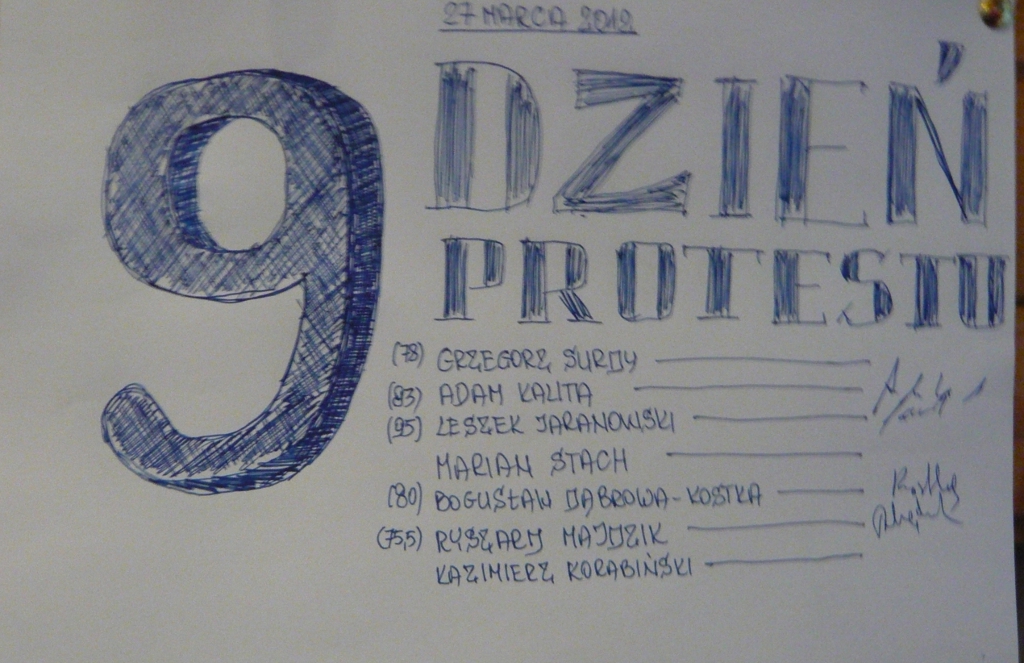 27 MARCA 2012
9 DZIEŃ
PROTESTU
(78) GRZEGORZ SURDY
(83) ADAM KALITA
(95) LESZEK JARANOWSKI
MARIAN STACH
(80) BOGUSŁAW DĄBROWA-KOSTKA
(75,5) RYSZARD MAJDZIK
KAZIMIERZ KORABIŃSKI